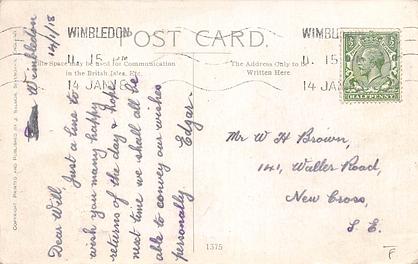 WIMBLEDON
11. 15 PM
14 JAN 18
POST CARD.
This Space may be used for Communication
in the British Isles, Etc.
The Address Only to be
Written Here
WIMBL
11. 15
14 JAN
HALFPENNY
Wimbledon
14/1/18
Dear Will, Just a line to
wish you many happy
returns of the day & hope
next time we shall all be
able to convey our wishes
personally Edgar.
Mr W H Brown,
141, Waller Road,
New Cross,
S. E.
1375
COPYRIGHT. PRINTED AND PUBLISHED BY J. SALMON, SEVENOAKS, ENGLAND